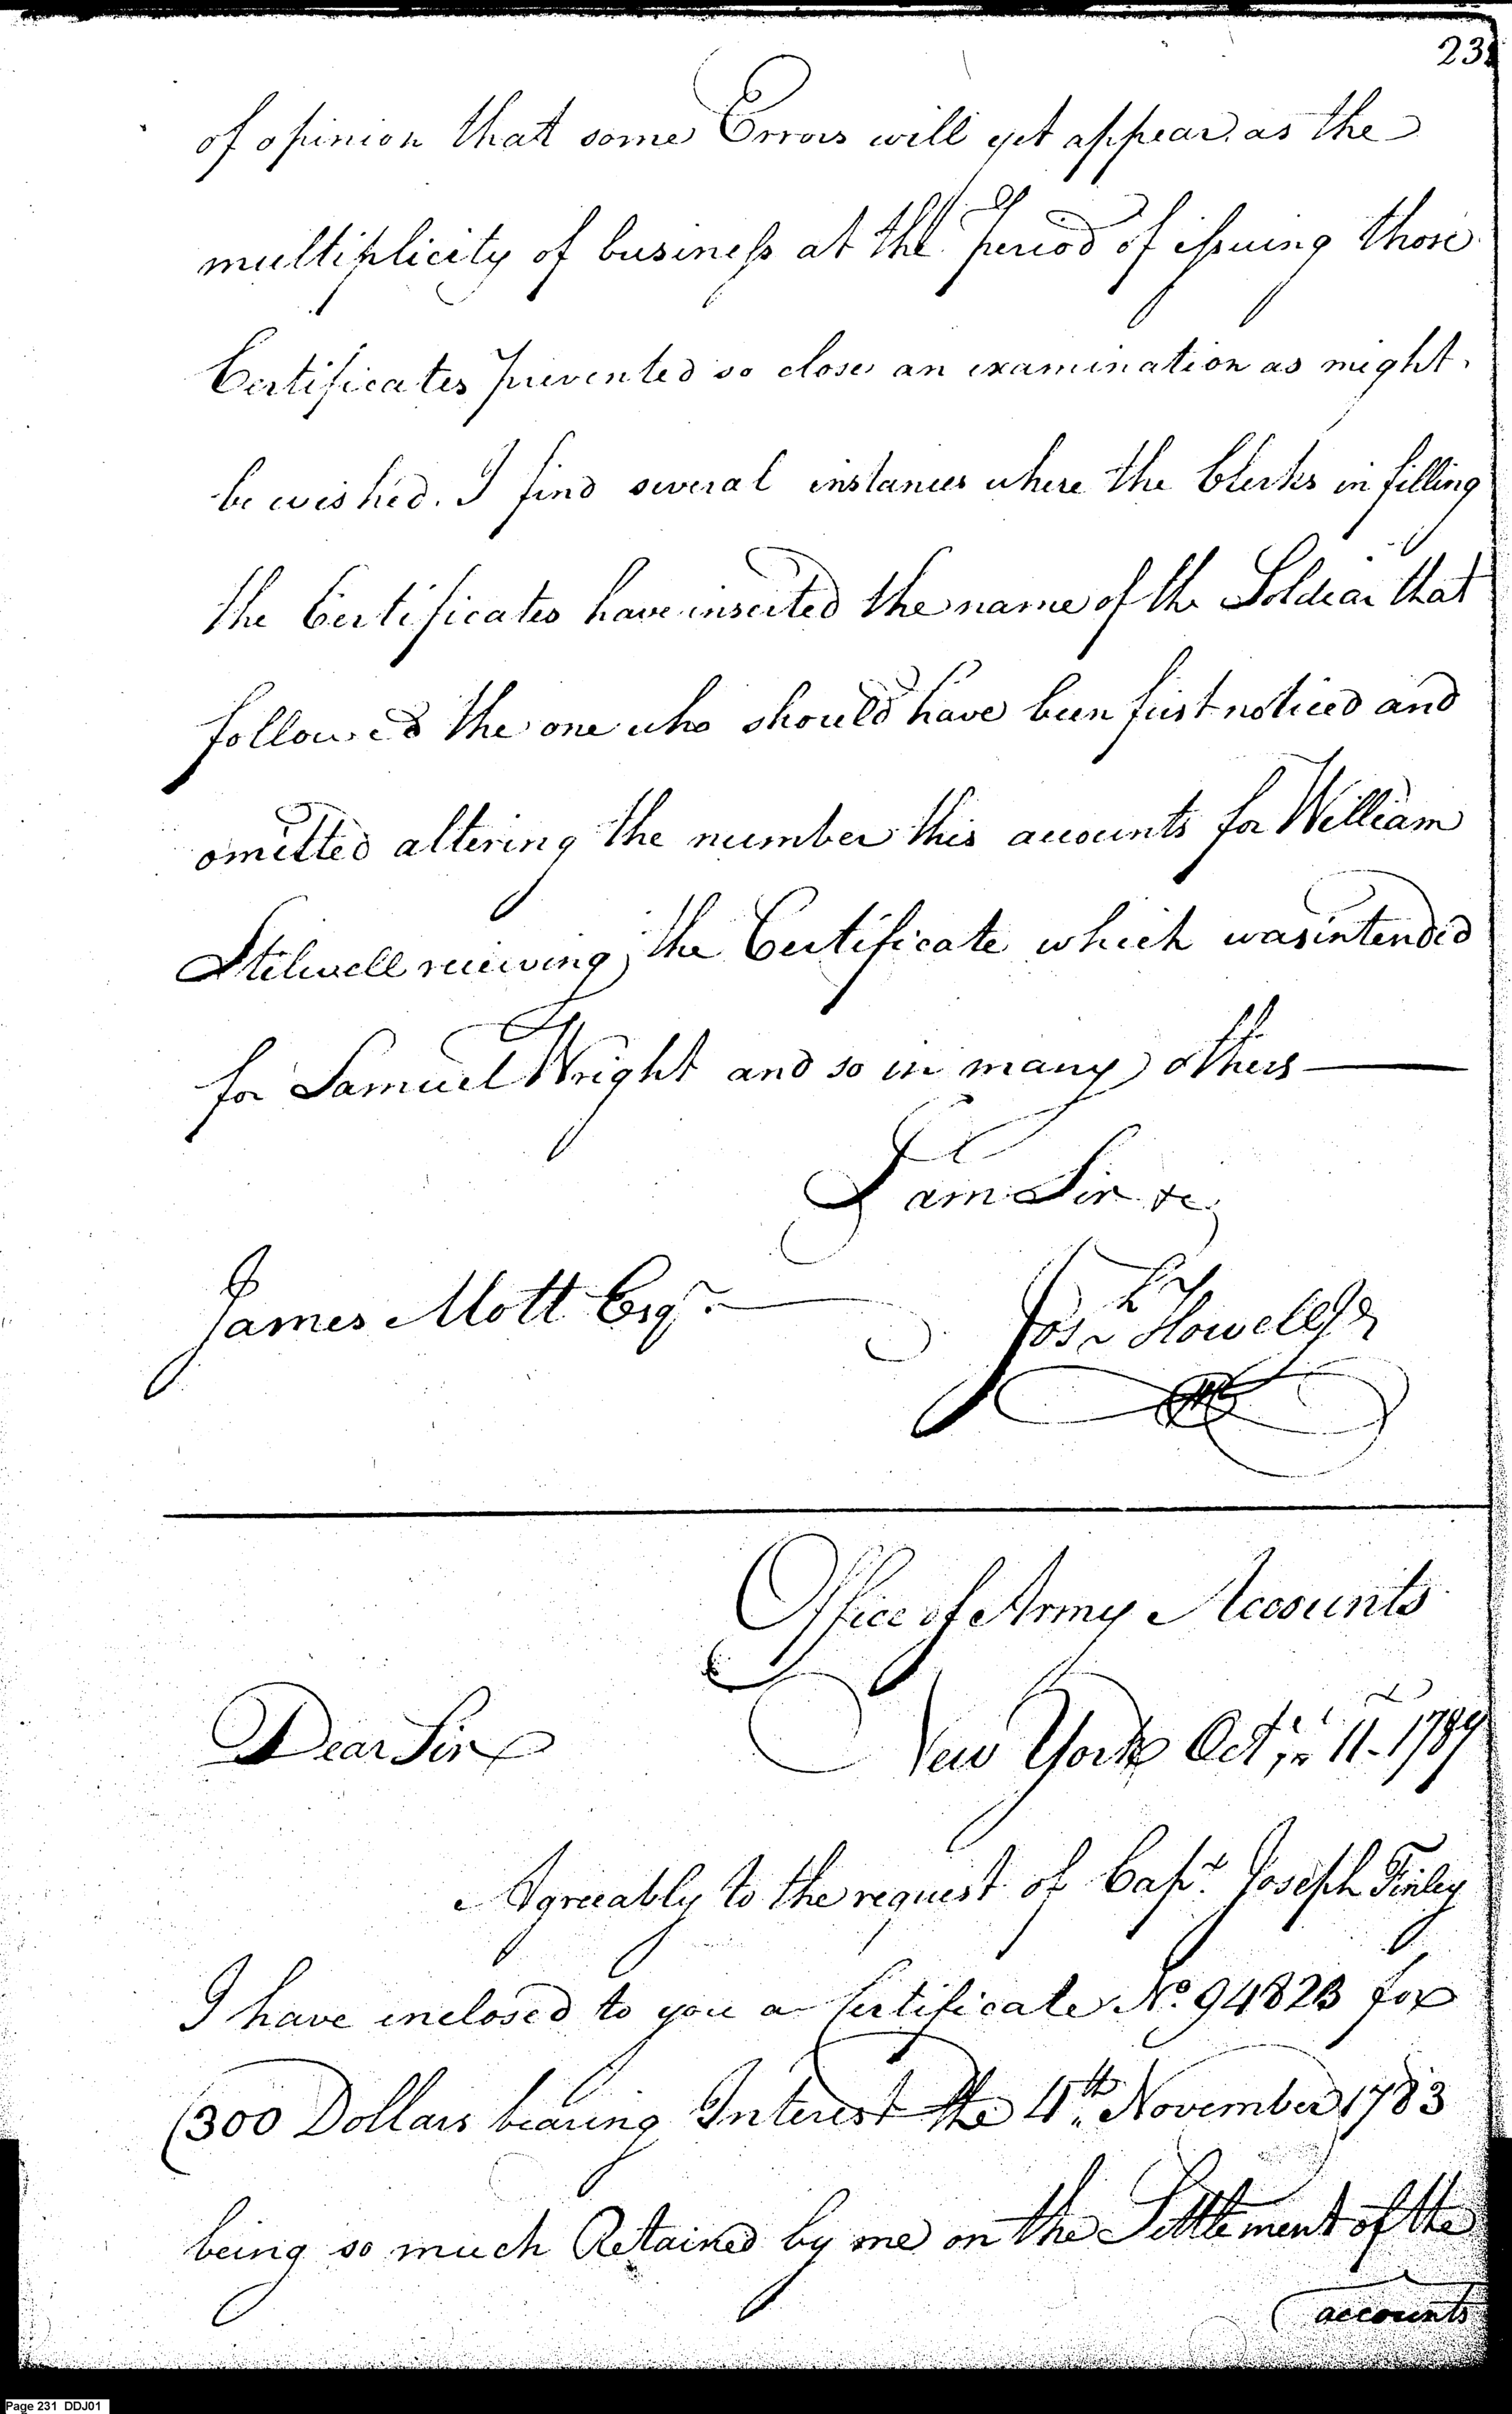 231
of opinion that some Errors will yet appear as the
multiplicity of business at the Period of issuing those
Certificates prevented so close an examination as might
be wished. I find several instances where the Clerks in filling
the Certificates have inserted the name of the Soldear that
followed the one who should have been first noticed and
omitted altering the number this accounts for William
Stilwell recieving the Certificate which was intended
for Samuel Wright and so in many others
I am Sir &c
James Mott Esqr.
Josh Howell Jr
Office of Army Accounts
Dear Sir
New York Oct 11 1789
Agreeably to the request of Capt. Joseph Finley
I have inclosed to you a Certificate No. 94823 for
300 Dollars bearing Interest the 4th November 1783
being so much Retained by me on the Settlement of the
accounts
Page 231 DDJ01